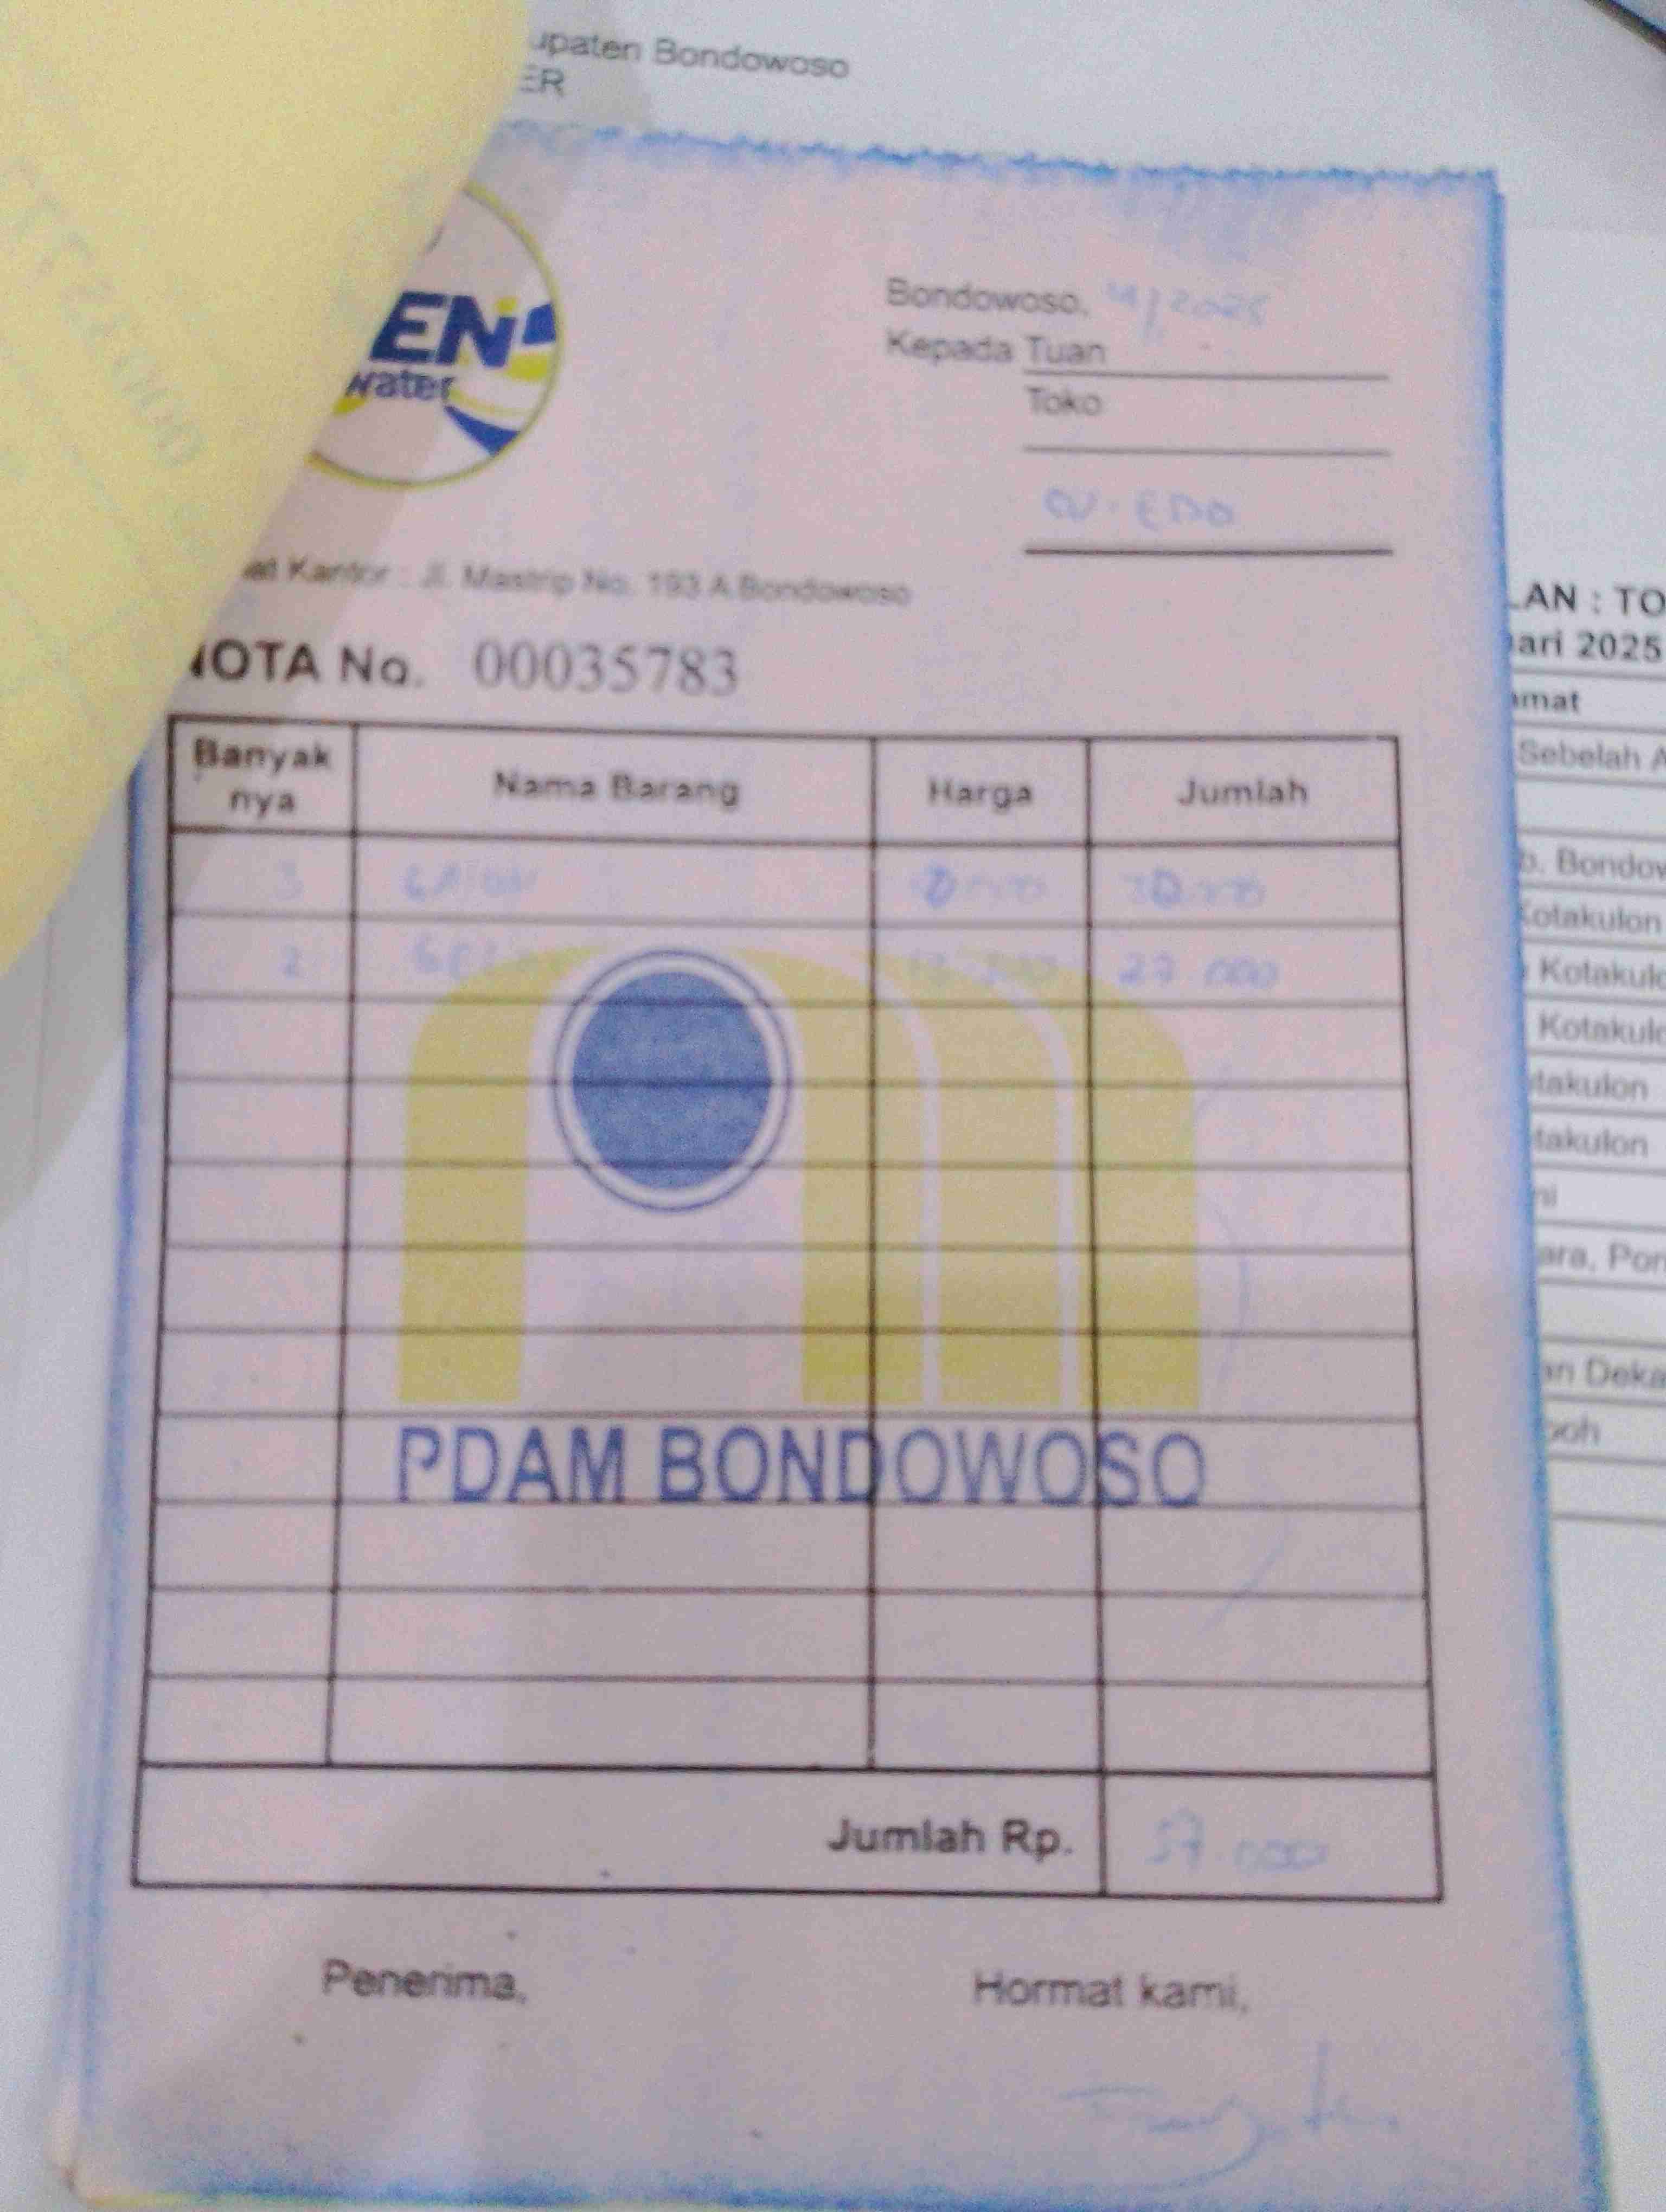 upaten Bondowoso
ER
EN
water
Bondowoso, 2025
Kepada Tuan
Toko
CV. EDO
at Kantor : Jl. Mastrip No. 193 A Bondowoso
NOTA No. 00035783
Banyak nya Nama Barang Harga Jumlah
3 30.000
2 27.000
PDAM BONDOWOSO
Jumlah Rp. 57.000
Penerima, Hormat kami,
LAN : TO
ari 2025
amat
Sebelah A
b. Bondow
Kotakulon
Kotakulo
Kotakulo
takulon
takulon
ni
ara, Pon
an Deka
poh